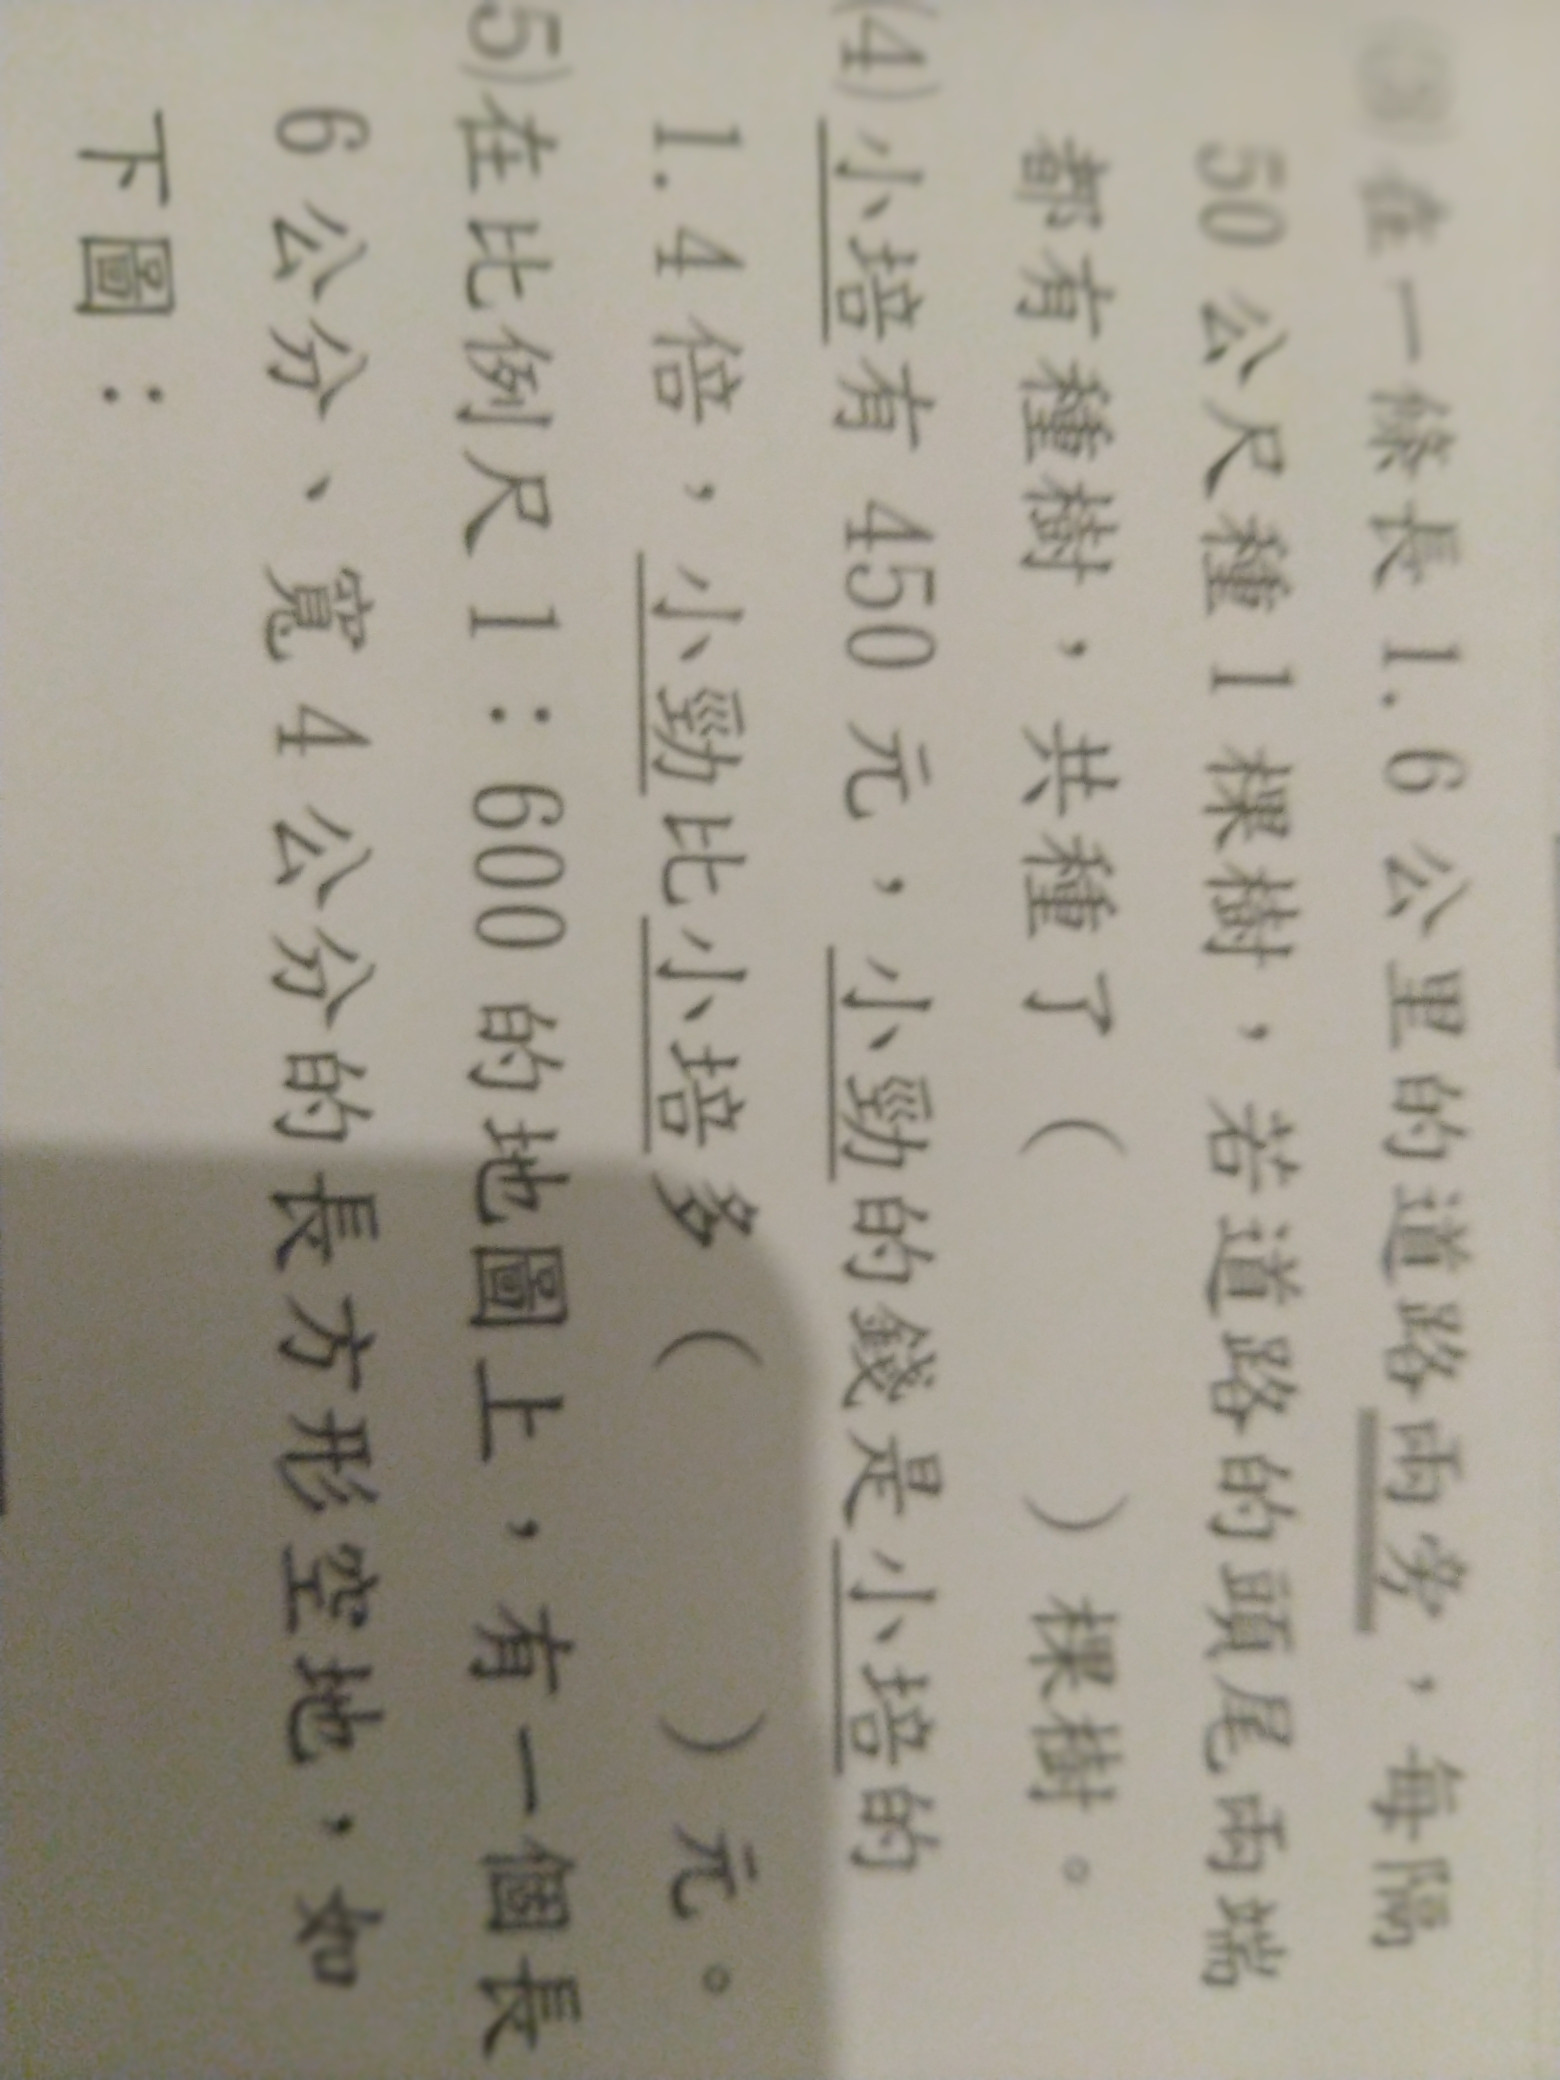 (3)在一條長 1.6 公里的道路兩旁，每隔
50 公尺種 1 棵樹，若道路的頭尾兩端
都有種樹，共種了（　　　）棵樹。
(4)小培有 450 元，小勁的錢是小培的
1.4 倍，小勁比小培多（　　　）元。
5)在比例尺 1：600 的地圖上，有一個長
6 公分、寬 4 公分的長方形空地，如
下圖：